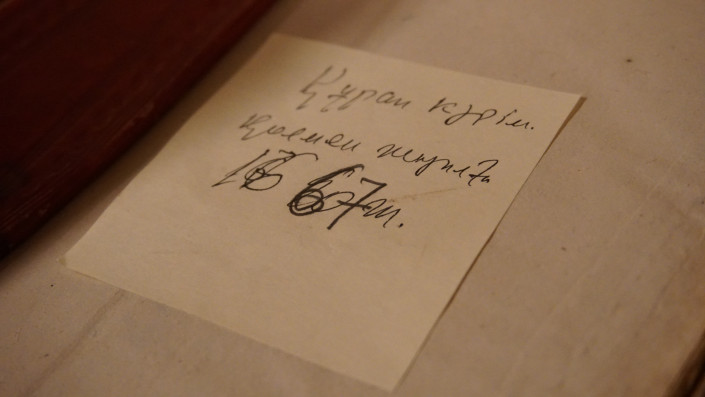 Құран кәрім.
қолмен жазылған
1667 ж.